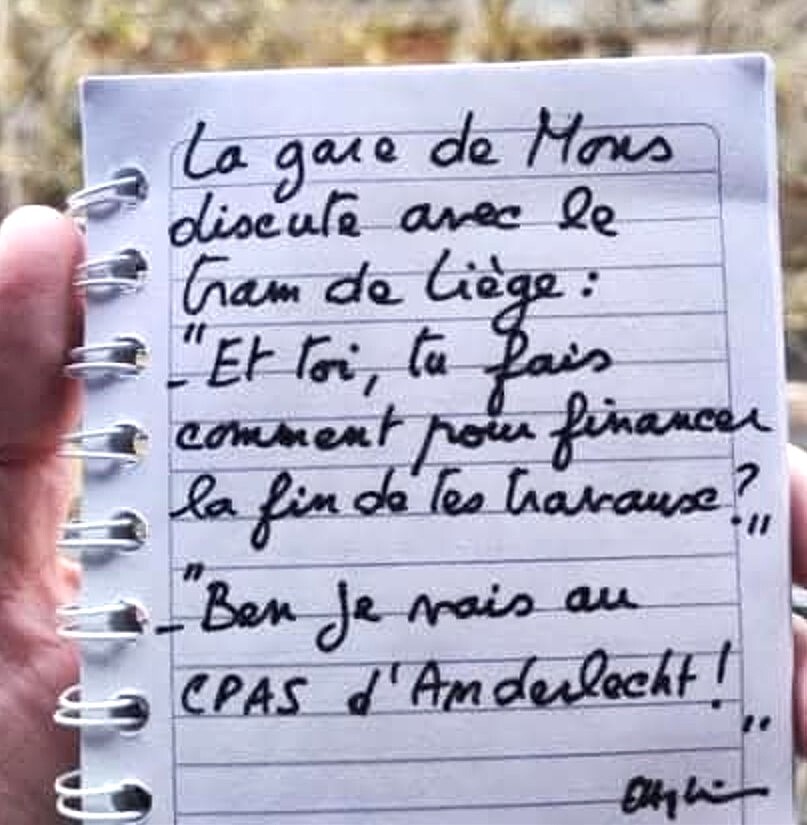 La gare de Mons
discute avec le
tram de Liège :
- "Et toi, tu fais
comment pour financer
la fin de tes travaux ? "
- "Ben je vais au
CPAS d'Anderlecht ! "